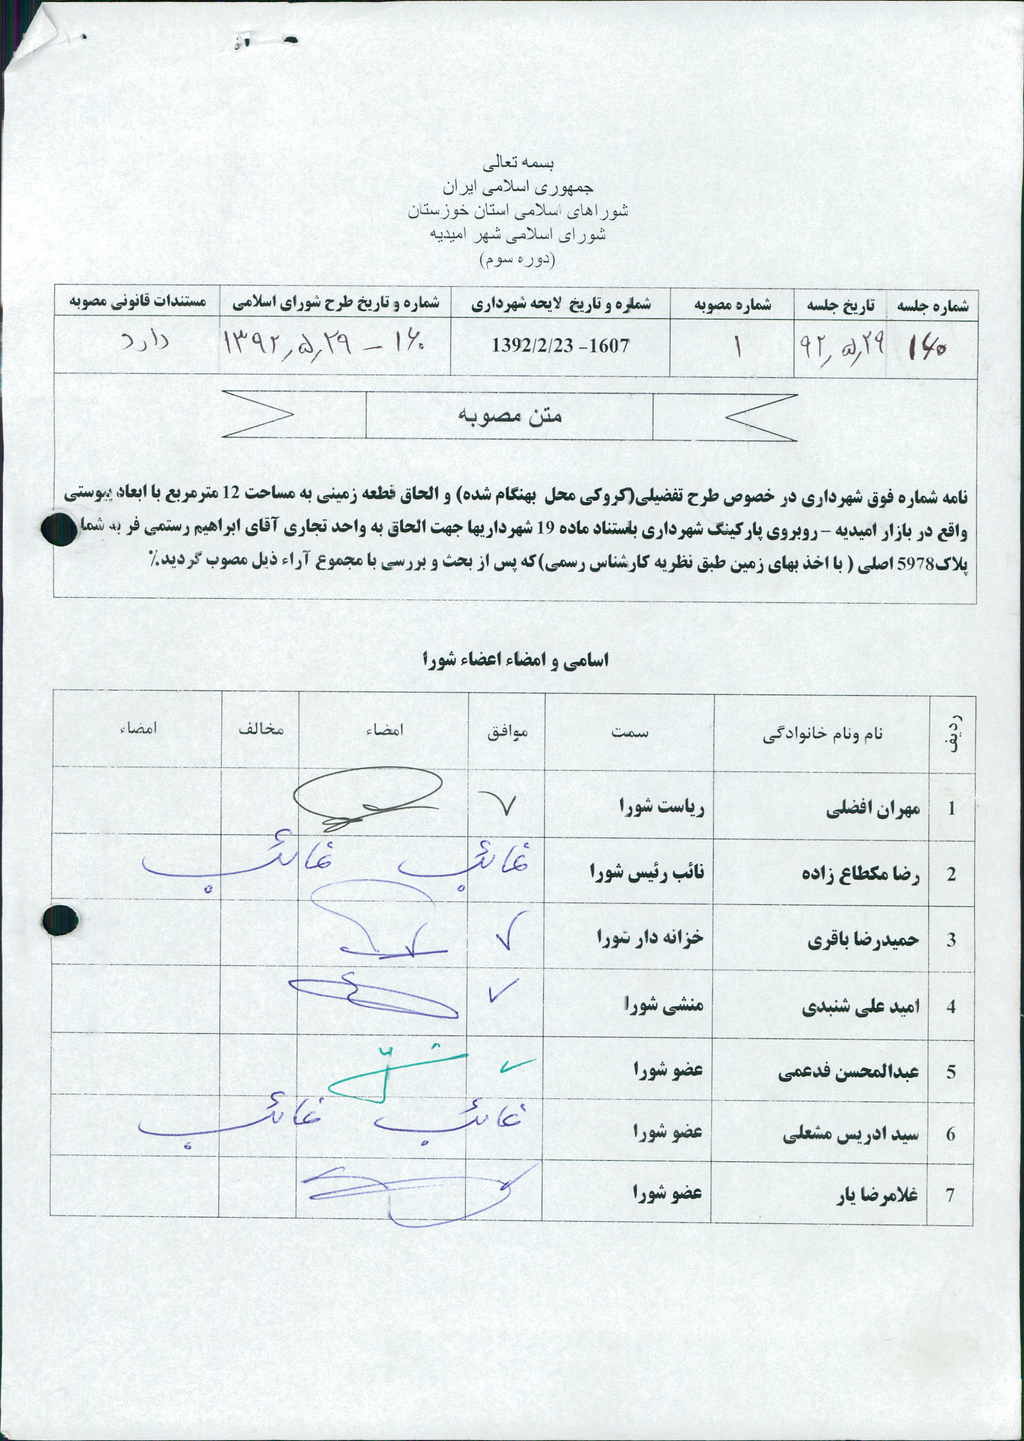 بسمه تعالی
جمهوری اسلامی ایران
شوراهای اسلامی استان خوزستان
شورای اسلامی شهر امیدیه
(دوره سوم)
شماره جلسه تاریخ جلسه شماره مصوبه شماره و تاریخ لایحه شهرداری شماره و تاریخ طرح شورای اسلامی مستندات قانونی مصوبه
۱۶۰ ۹۲/۵/۲۹ ۱ 1607- 1392/2/23 ۱۶۰ - ۱۳۹۲/۵/۲۹ دارد
متن مصوبه
نامه شماره فوق شهرداری در خصوص طرح تفضیلی(کروکی محل بهنگام شده) و الحاق قطعه زمینی به مساحت 12 مترمربع با ابعاد پیوستی
واقع در بازار امیدیه – روبروی پارکینگ شهرداری باستناد ماده 19 شهرداریها جهت الحاق به واحد تجاری آقای ابراهیم رستمی فر به شما
پلاک5978 اصلی ( با اخذ بهای زمین طبق نظریه کارشناس رسمی)که پس از بحث و بررسی با مجموع آراء ذیل مصوب گردید.٪
اسامی و امضاء اعضاء شورا
ردیف نام ونام خانوادگی سمت موافق امضاء مخالف امضاء
1 مهران افضلی ریاست شورا ✓
2 رضا مکطاع زاده نائب رئیس شورا غائب غائب
3 حمیدرضا باقری خزانه دار شورا ✓
4 امید علی شنبدی منشی شورا ✓
5 عبدالمحسن فدعمی عضو شورا ✓
6 سید ادریس مشعلی عضو شورا غائب غائب
7 غلامرضا یار عضو شورا